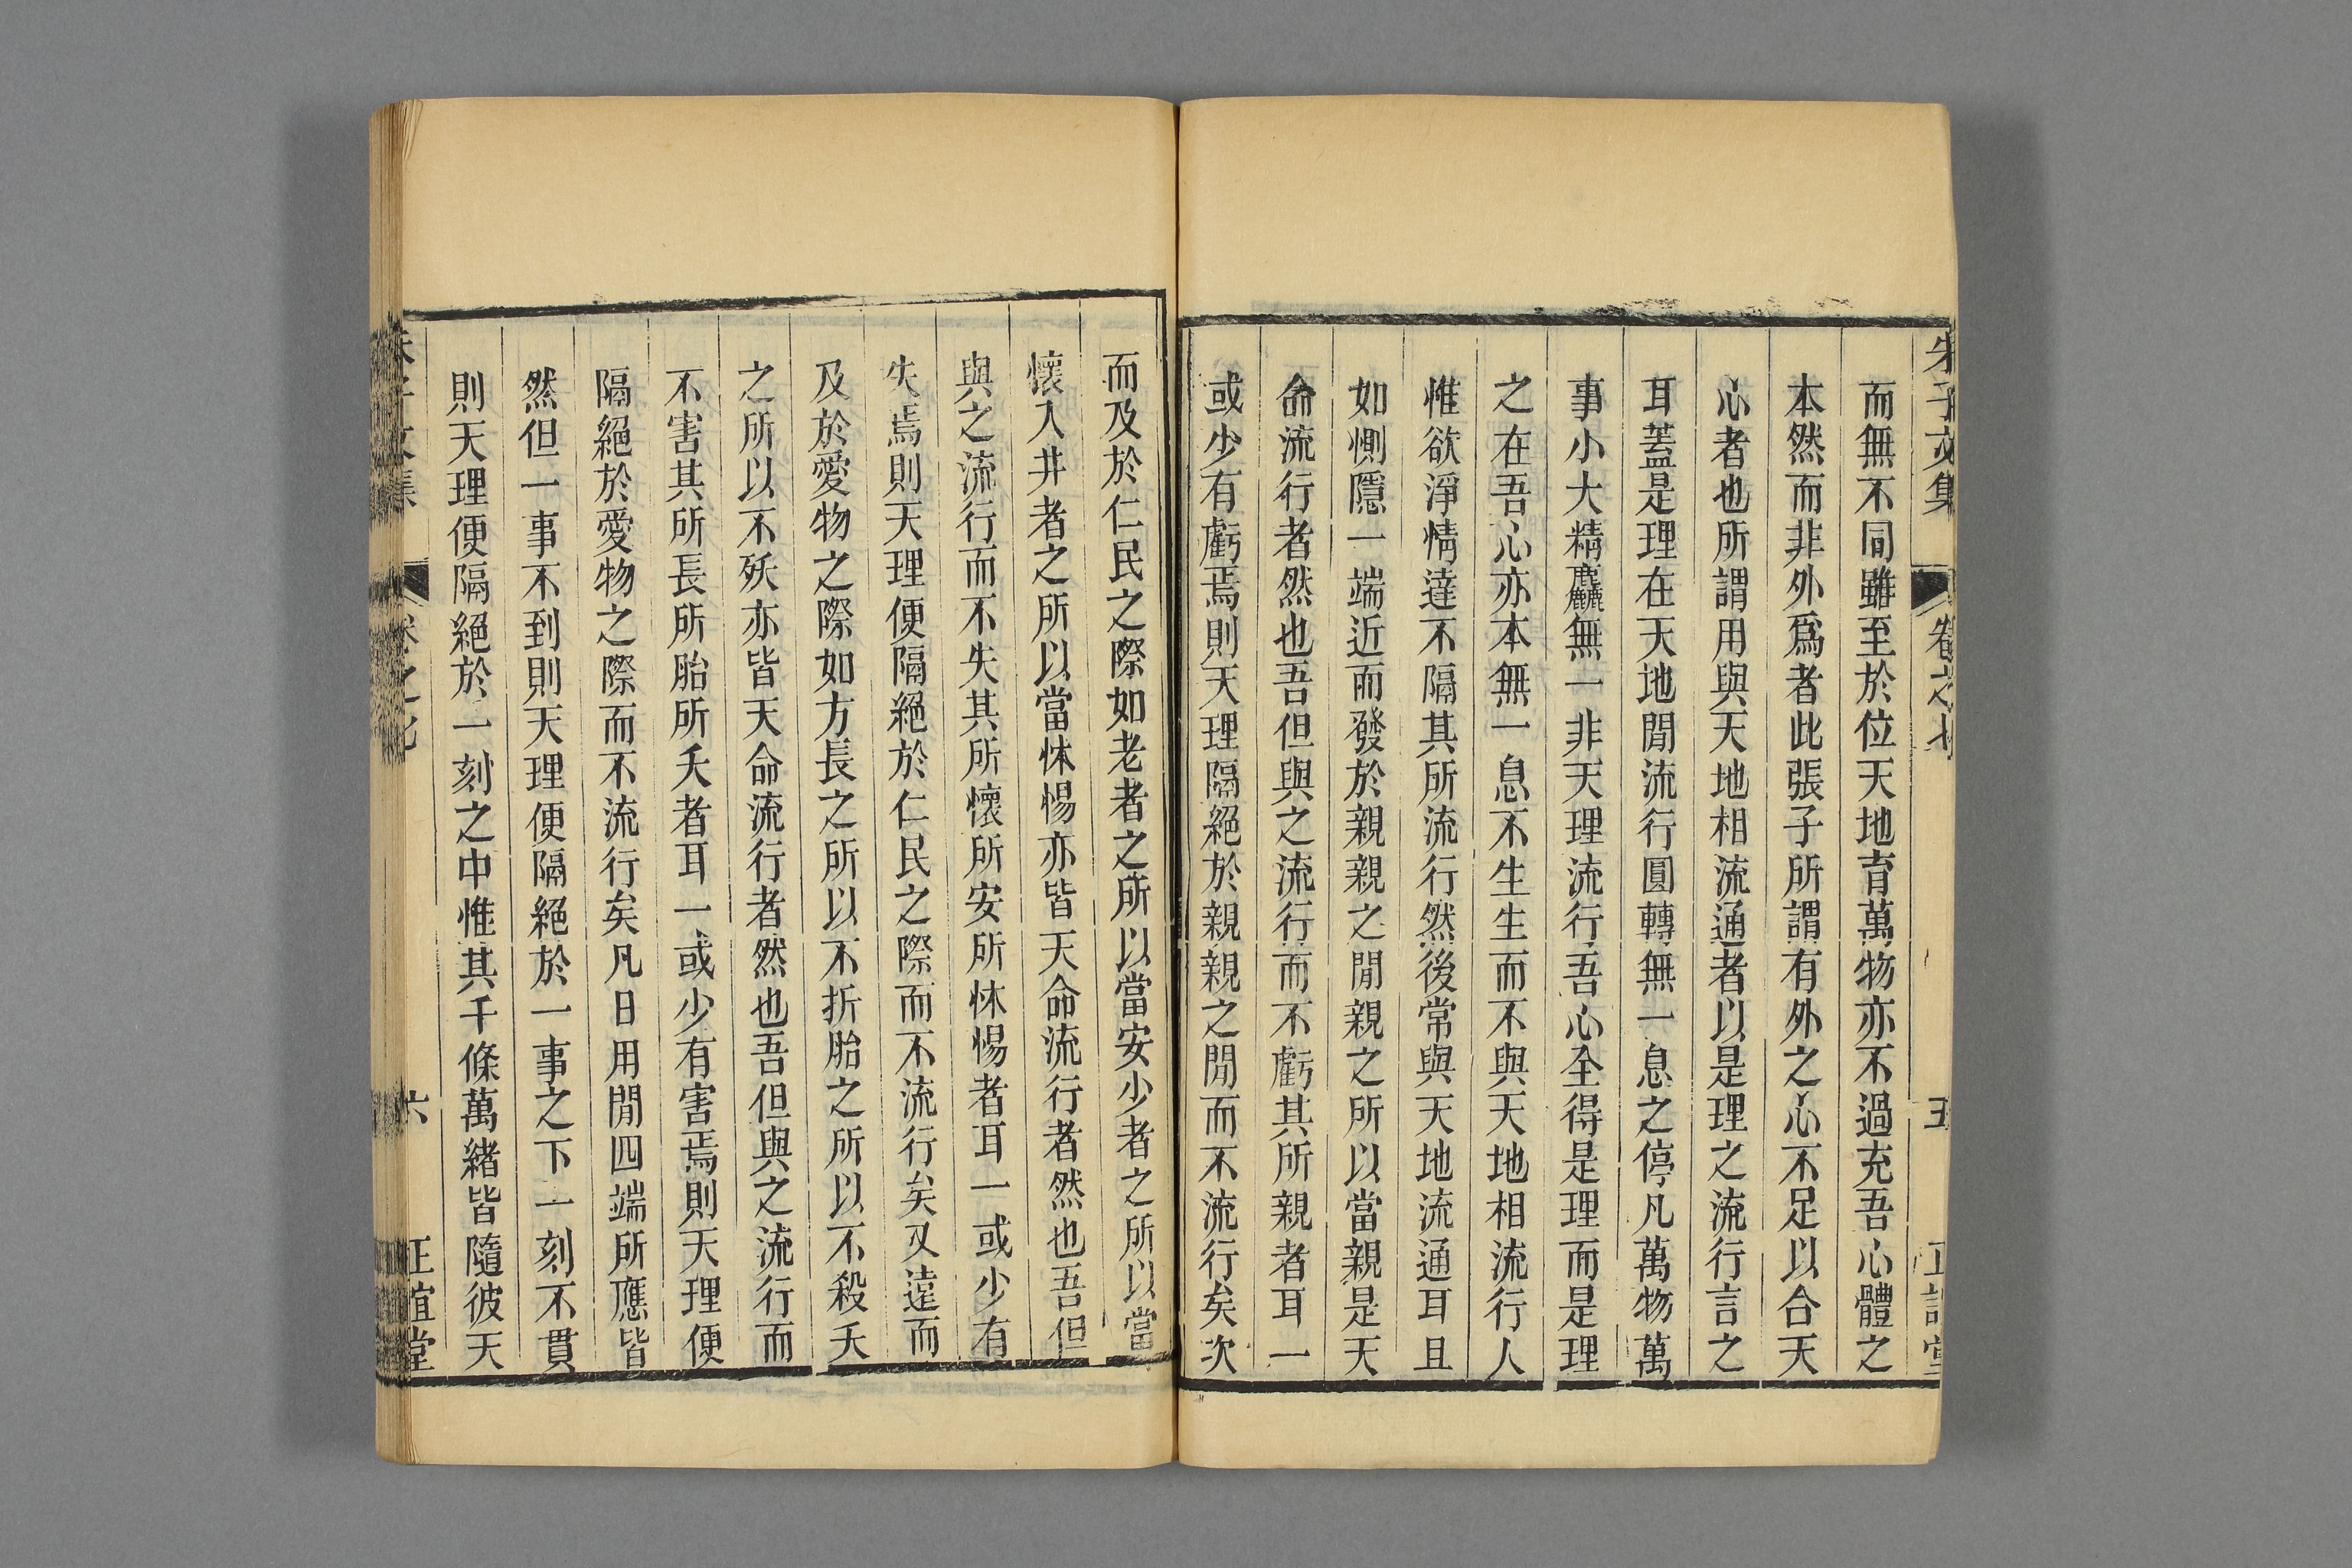 朱子文集 卷之七 五 正誼堂
而無不同雖至於位天地育萬物亦不過充吾心體之
本然而非外爲者此張子所謂有外之心不足以合天
心者也所謂用與天地相流通者以是理之流行言之
耳蓋是理在天地閒流行圓轉無一息之停凡萬物萬
事小大精麤無一非天理流行吾心全得是理而是理
之在吾心亦本無一息不生生而不與天地相流行人
惟欲淨情達不隔其所流行然後常與天地流通耳且
如惻隱一端近而發於親親之閒親之所以當親是天
命流行者然也吾但與之流行而不虧其所親者耳一
或少有虧焉則天理隔絕於親親之閒而不流行矣次
而及於仁民之際如老者之所以當安少者之所以當
懷入井者之所以當怵惕亦皆天命流行者然也吾但
與之流行而不失其所懷所安所怵惕者耳一或少有
失焉則天理便隔絕於仁民之際而不流行矣又遠而
及於愛物之際如方長之所以不折胎之所以不殺夭
之所以不殀亦皆天命流行者然也吾但與之流行而
不害其所長所胎所夭者耳一或少有害焉則天理便
隔絕於愛物之際而不流行矣凡日用閒四端所應皆
然但一事不到則天理便隔絕於一事之下一刻不貫
則天理便隔絕於一刻之中惟其千條萬緒皆隨彼天
朱子文集 卷之七 六 正誼堂